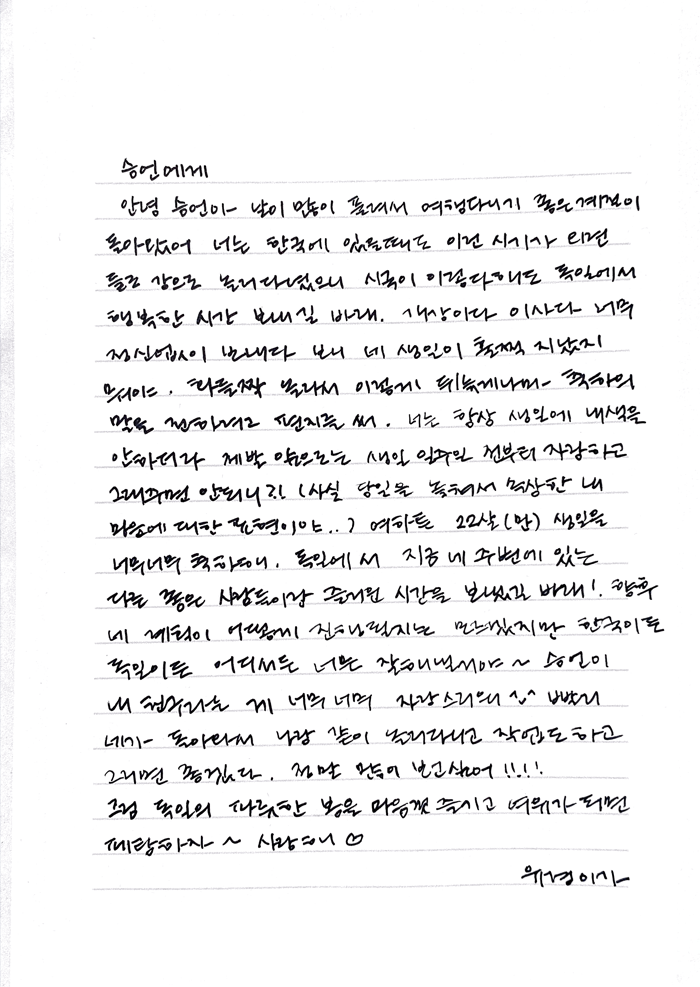 승언에게
안녕 승언아 날이 많이 풀려서 여행다니기 좋은계절이
돌아왔어 너는 한국에 있을때도 이런 시기가 되면
들로 강으로 놀러다녔으니 시국이 이렇다해도 독일에서
행복한 시간 보내길 바래. 개강이다 이사다 너무
정신없이 보내다 보니 네 생일이 훌쩍 지났지
뭐이야. 화들짝 놀라서 이렇게 뒤늦게나마 축하의
말을 전하려고 편지를 써. 너는 항상 생일에 내색을
안하더라 제발 앞으로는 생일 일주일 전부터 자랑하고
그래주면 안되니?! (사실 당일을 놓쳐서 속상한 내
마음에 대한 표현이야..) 여하튼 22살(만) 생일을
너무너무 축하해. 독일에서 지금 네 주변에 있는
다른 좋은 사람들이랑 즐거운 시간을 보냈길 바래! 향후
네 계획이 어떻게 진행될지는 모르겠지만 한국이든
독일이든 어디서든 너는 잘해낼거야 ~ 승언이
내 친구라는 게 너무 너무 자랑스러워 ^^ 빨리
네가 돌아와서 나랑 같이 놀러다니고 작업도하고
그러면 좋겠다. 정말 많이 보고싶어 !!!!
그럼 독일의 따뜻한 봄을 마음껏 즐기고 여유가 되면
페탐하자 ~ 사랑해 ♡
유경이가